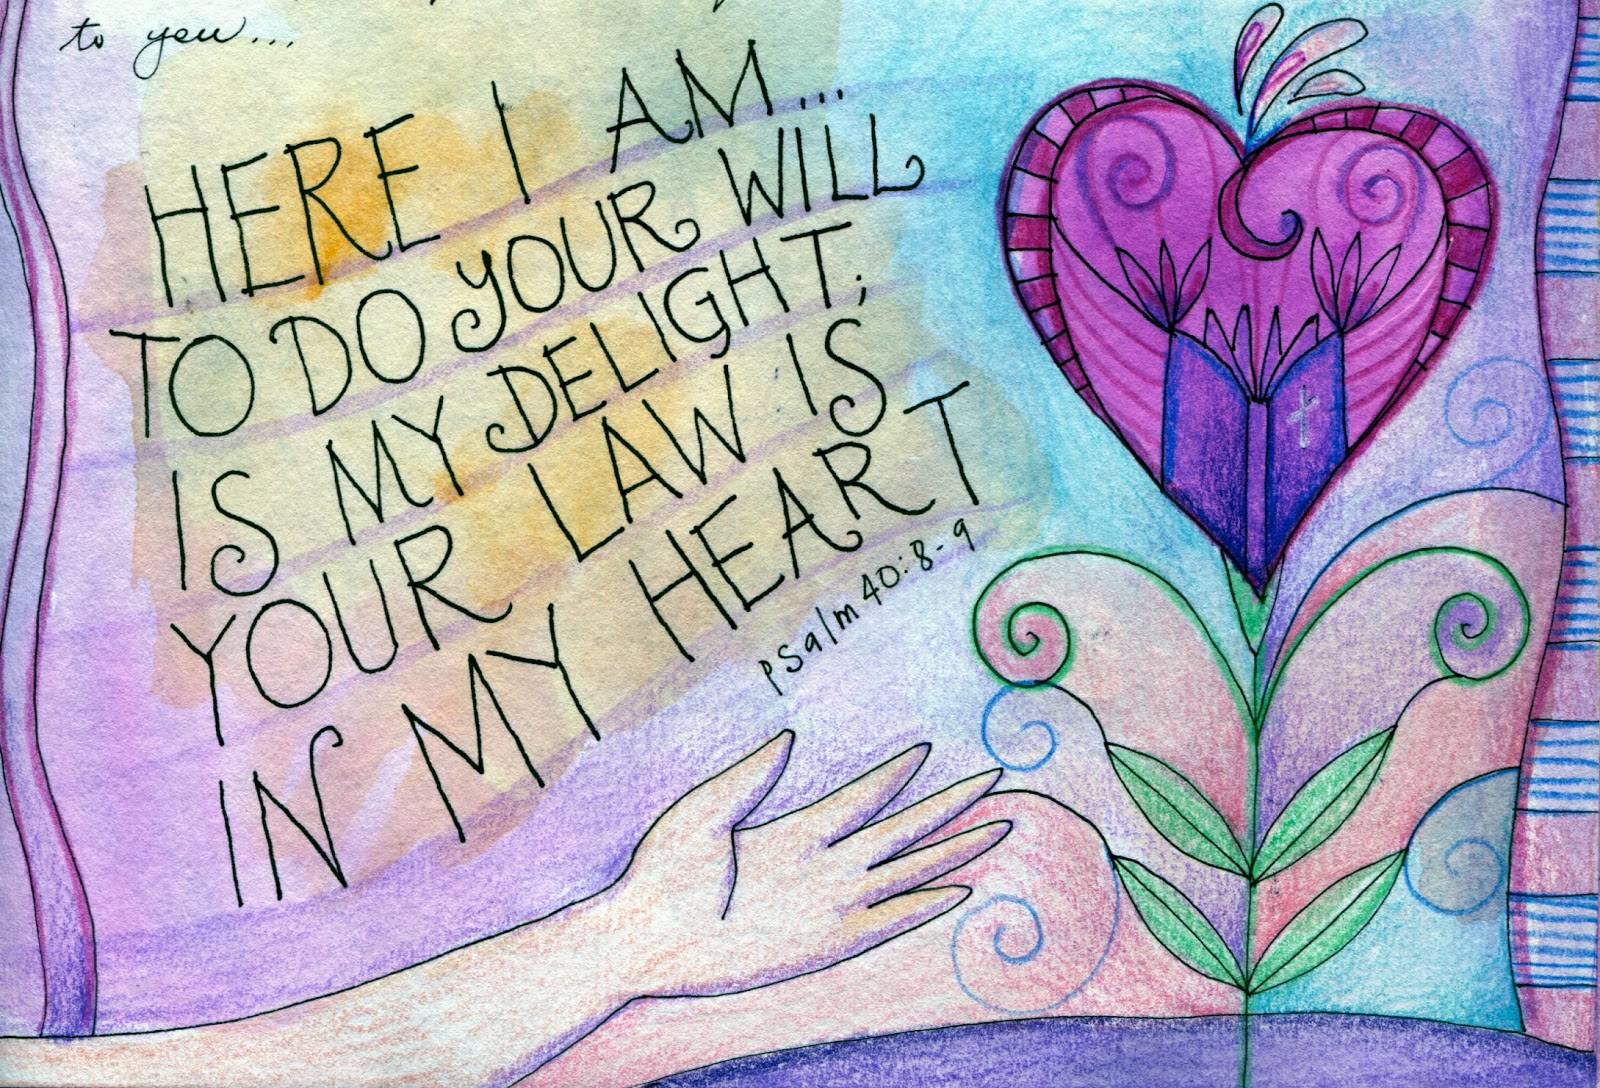 to you...
HERE I AM...
TO DO YOUR WILL
IS MY DELIGHT;
YOUR LAW IS
IN MY HEART
psalm 40:8-9